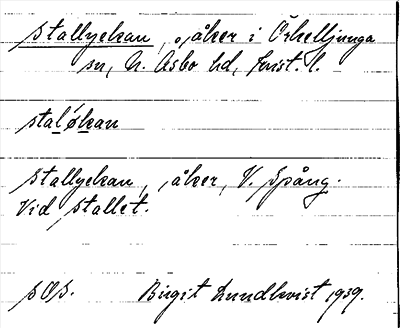 Stallyckan, åker i Örkelljunga
sn, N. Åsbo hd, krist. l.
stalø̱kan
Stallyckan, åker, V. Spång.
Vid stallet.
SOS. Birgit Lundkvist 1939.